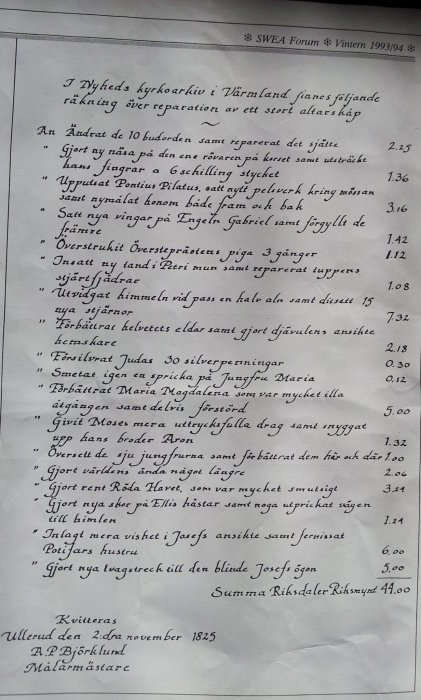 ❄ SWEA Forum ❄ Vintern 1993/94 ❄
I Nyheds kyrkoarkiv i Värmland finnes följande
räkning över reparation av ett stort altarskåp
~
An Ändrat de 10 budorden samt reparerat det sjätte 2.25
" Gjort ny näsa på den ene rövaren på korset samt utsträckt
hans fingrar a 6 schilling stycket 1.36
" Upputsat Pontius Pilatus, satt nytt pelsverk kring mössan
samt nymålat honom både fram och bak 3.16
" Satt nya vingar på Engeln Gabriel samt förgyllt de
främre 1.42
" Överstrukit Översteprästens piga 3 gånger 1.12
" Insatt ny tand i Petri mun samt reparerat tuppens
stjärtfjädrar 1.08
" Utvidgat himmeln vid pass en halv aln samt ditsatt 15
nya stjärnor 7.32
" Förbättrat helvetets eldar samt gjort djävulens ansikte
hemskare 2.18
" Försilvrat Judas 30 silverpenningar 0.30
" Smetat igen en spricka på Jungfru Maria 0.12
" Förbättrat Maria Magdalena som var mycket illa
åtgången samt delvis förstörd 5.00
" Givit Moses mera uttrycksfulla drag samt snyggat
upp hans broder Aron 1.32
" Översett de sju jungfrurna samt förbättrat dem här och där 1.00
" Gjort världens ända något längre 2.06
" Gjort rent Röda Havet, som var mycket smutsigt 3.24
" Gjort nya skor på Ellis hästar samt noga utprickat vägen
till himlen 1.24
" Inlagt mera vishet i Josefs ansikte samt fernissat
Potifars hustru 6.00
" Gjort nya tvagstreck till den blinde Josefs ögon 5.00
Summa Riksdaler Riksmynt 44.00
Kvitteras
Ullerud den 2.dra november 1825
A P Björklund
Målarmästare